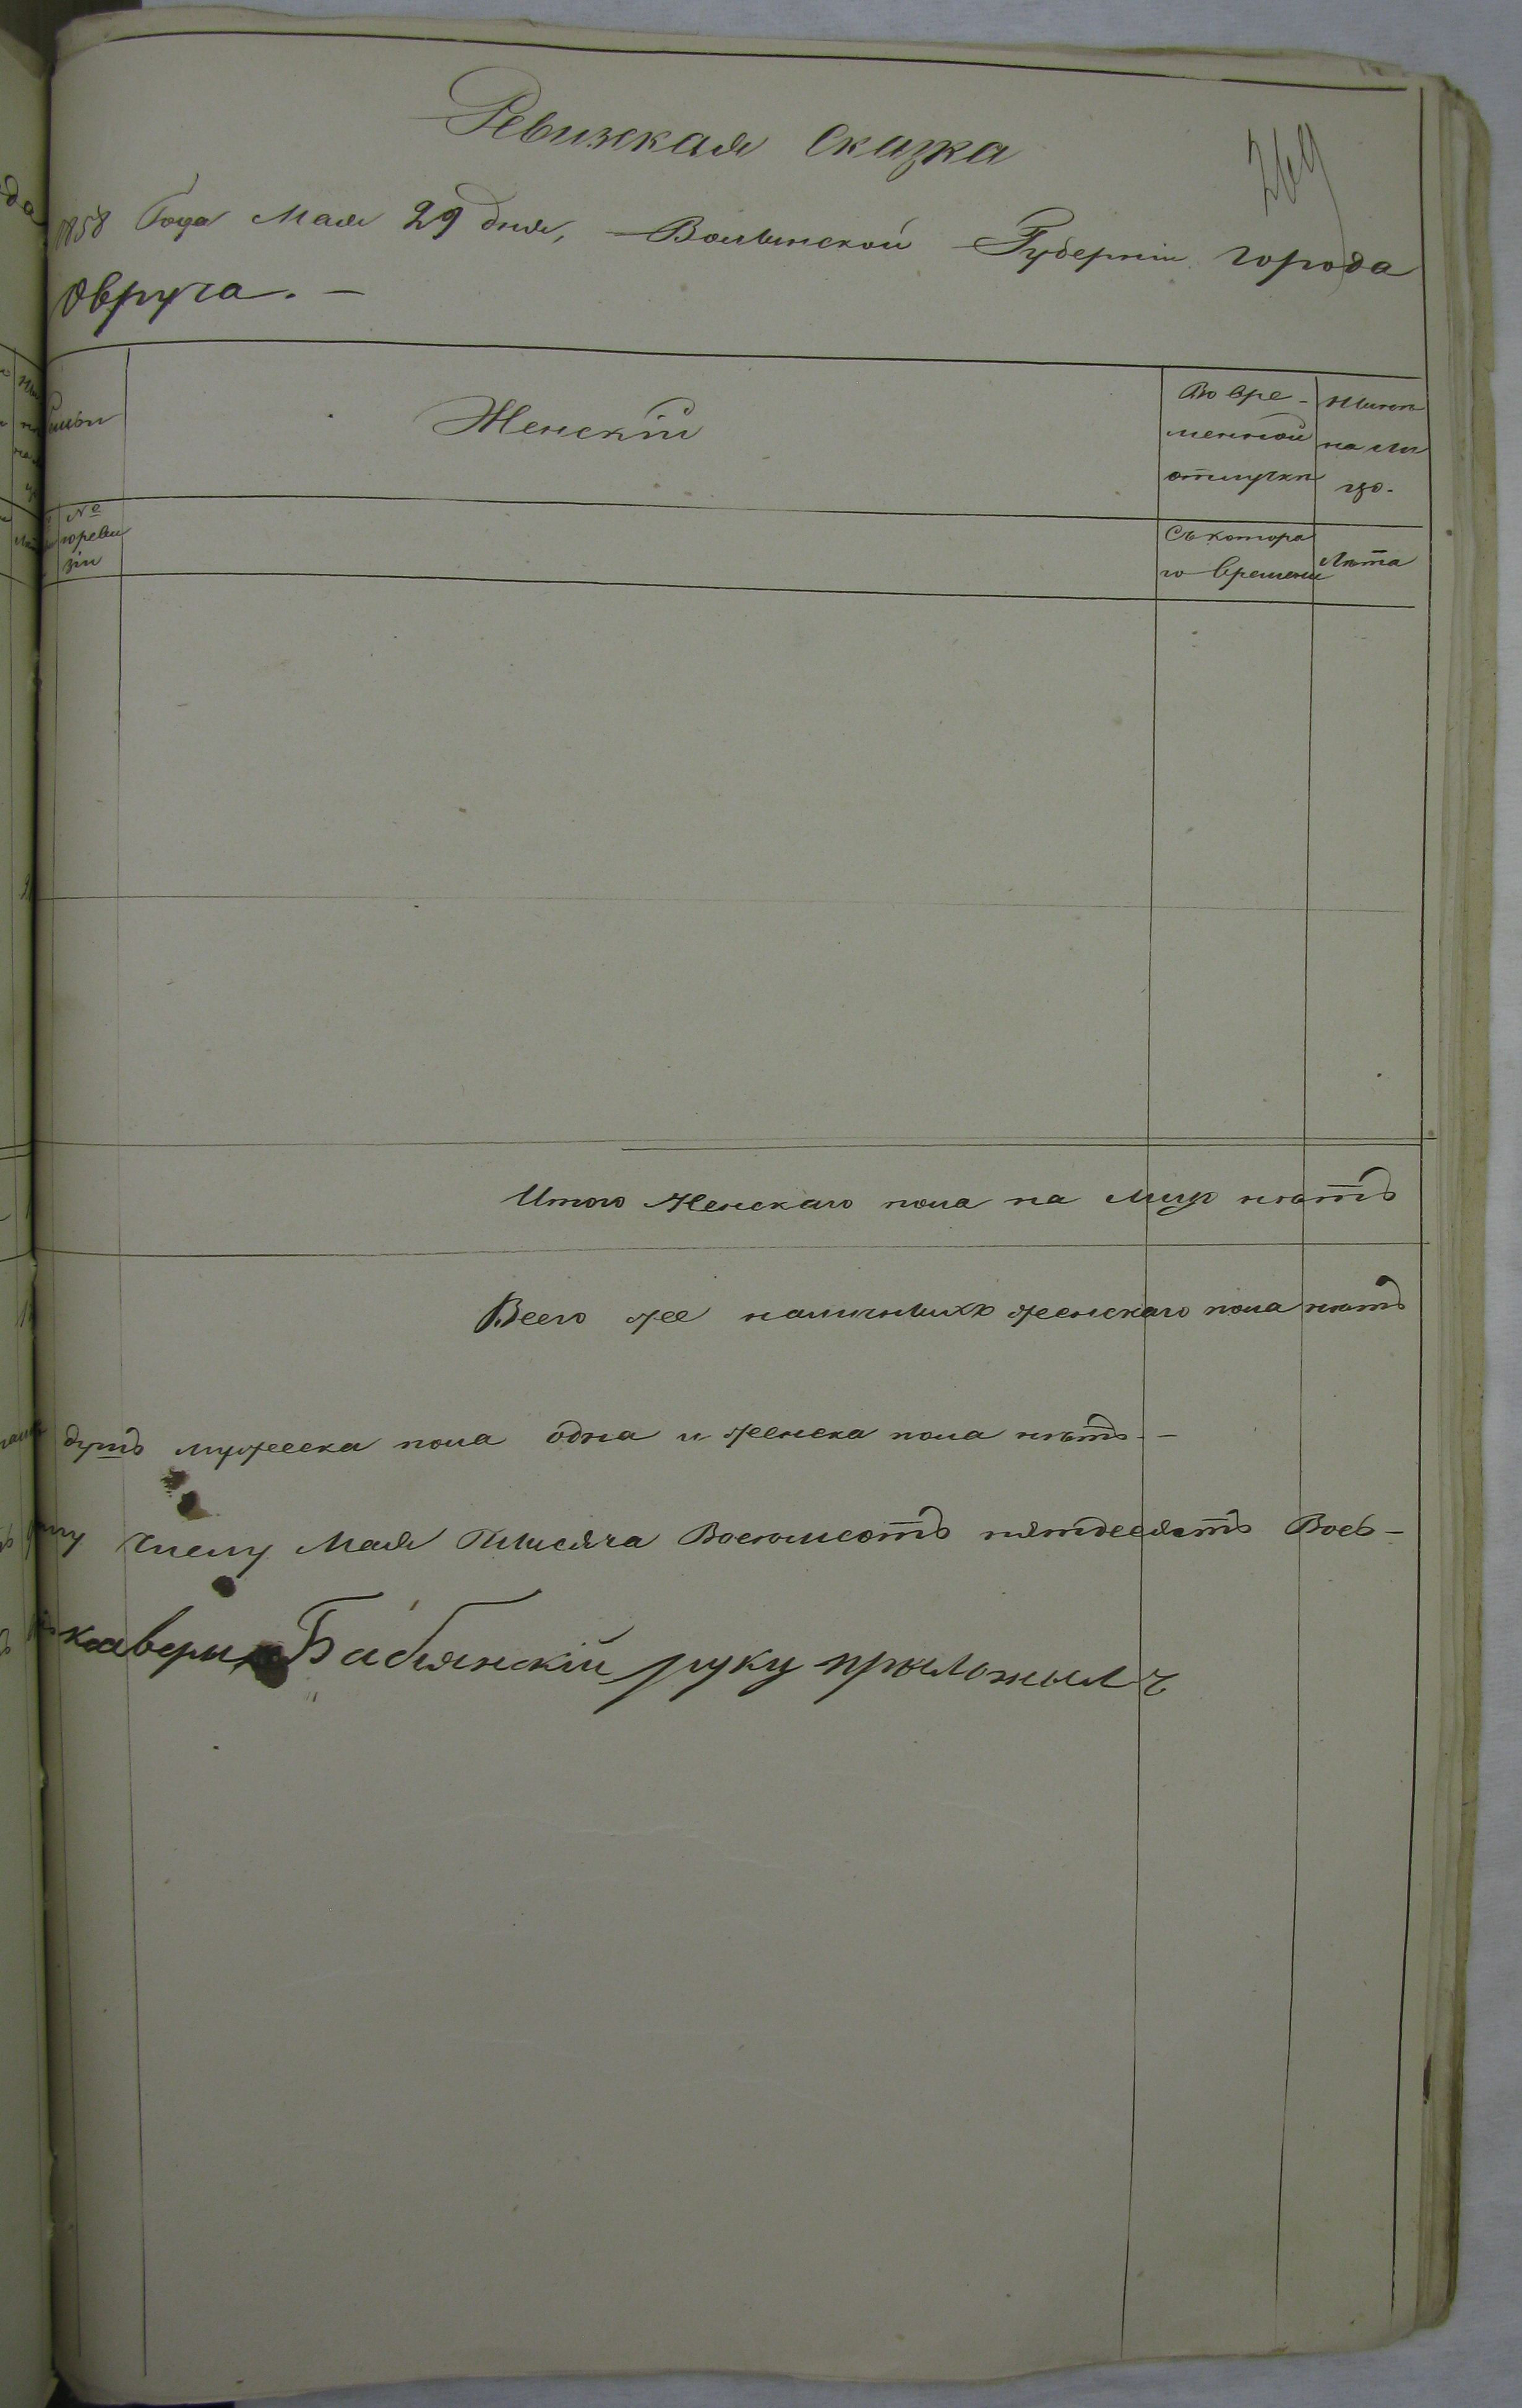 Ревизкая Сказка
269
1858 Года Мая 29 дня, Волынской Губернии города
Овруча. —
Женскій
Во вре-
менной
отлучкѣ
Нынѣ
на ли
цо.
№
Съ котора
го времени
Лѣта
Итого Женскаго пола на лицо нѣтъ
Всего же наличныхъ женскаго пола нѣтъ
душъ мужеска пола одна и женска пола нѣтъ. —
числу Мая Тысяча Восемсотъ пятдесятъ Вось-
Бабянскій руку прыложылъ